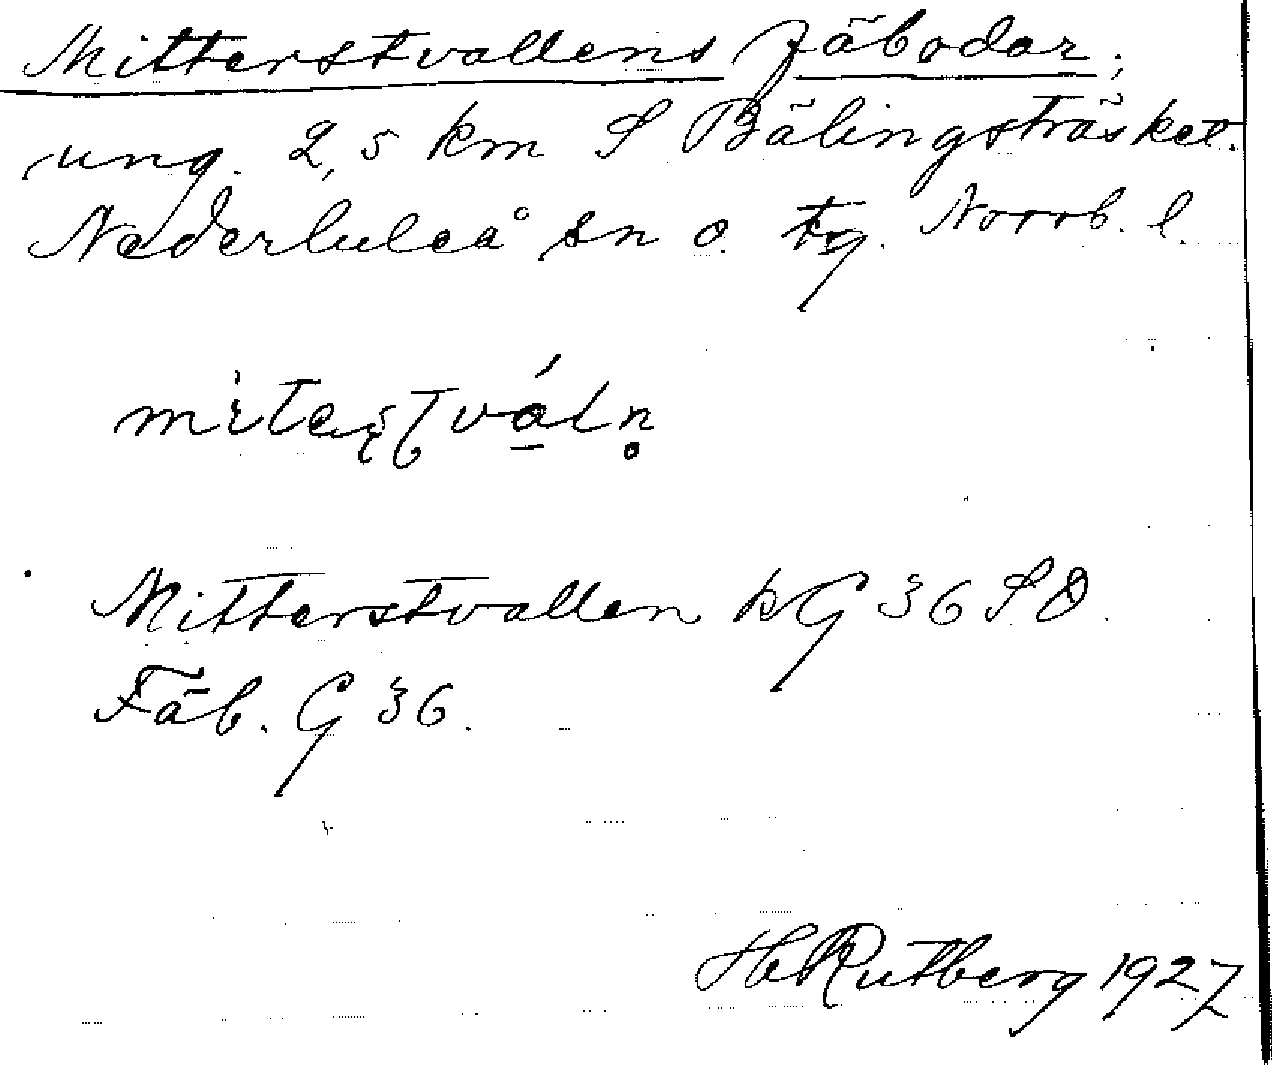 Mitterstvallens fäbodar;
ung. 2,5 km S Bälingsträsket.
Nederluleå sn o. tg. Norrb. l.
Mitterstvallen kG 36 SO.
Fäb. G 36.
H Rutberg 1927